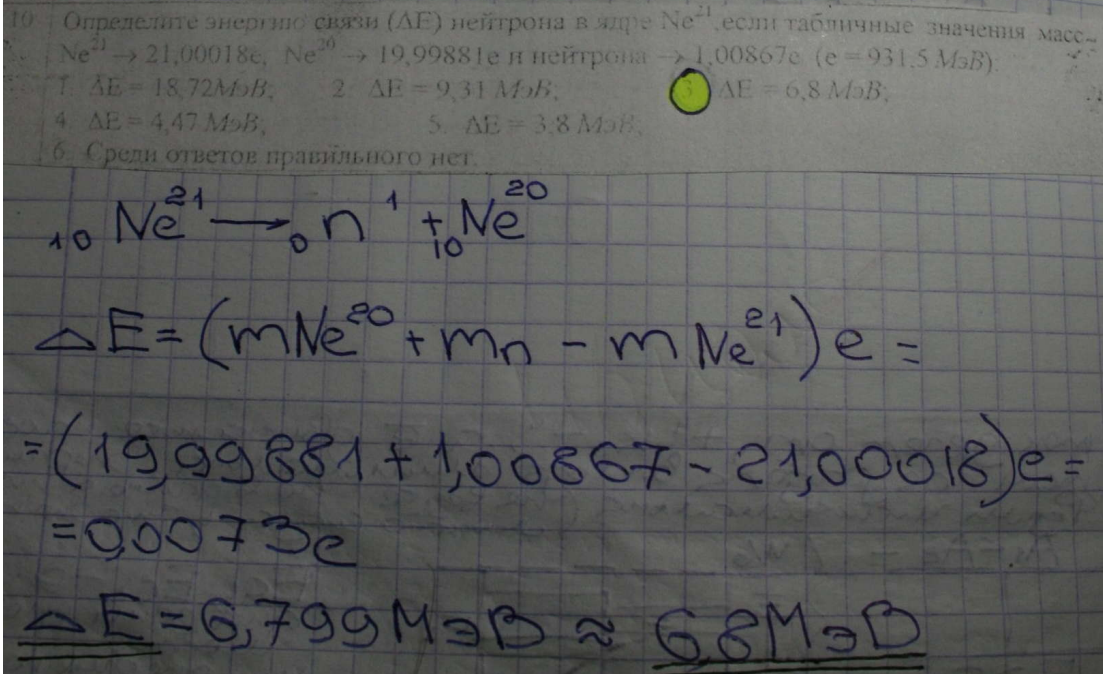 10 Определите энергию связи (ΔE) нейтрона в ядре Ne²¹, если табличные значения масс
Ne²¹ → 21,00018e, Ne²⁰ → 19,99881e и нейтрона → 1,00867e (e = 931,5 МэВ).
1. ΔE = 18,72МэВ; 2. ΔE = 9,31 МэВ; 3. ΔE = 6,8 МэВ;
4. ΔE = 4,47 МэВ; 5. ΔE = 3,8 МэВ;
6. Среди ответов правильного нет.
₁₀Ne²¹ → ₀n¹ + ₁₀Ne²⁰
ΔE = (mNe²⁰ + mn − mNe²¹)e =
= (19,99881 + 1,00867 − 21,00018)e =
= 0,0073e
ΔE = 6,799МэВ ≈ 6,8МэВ